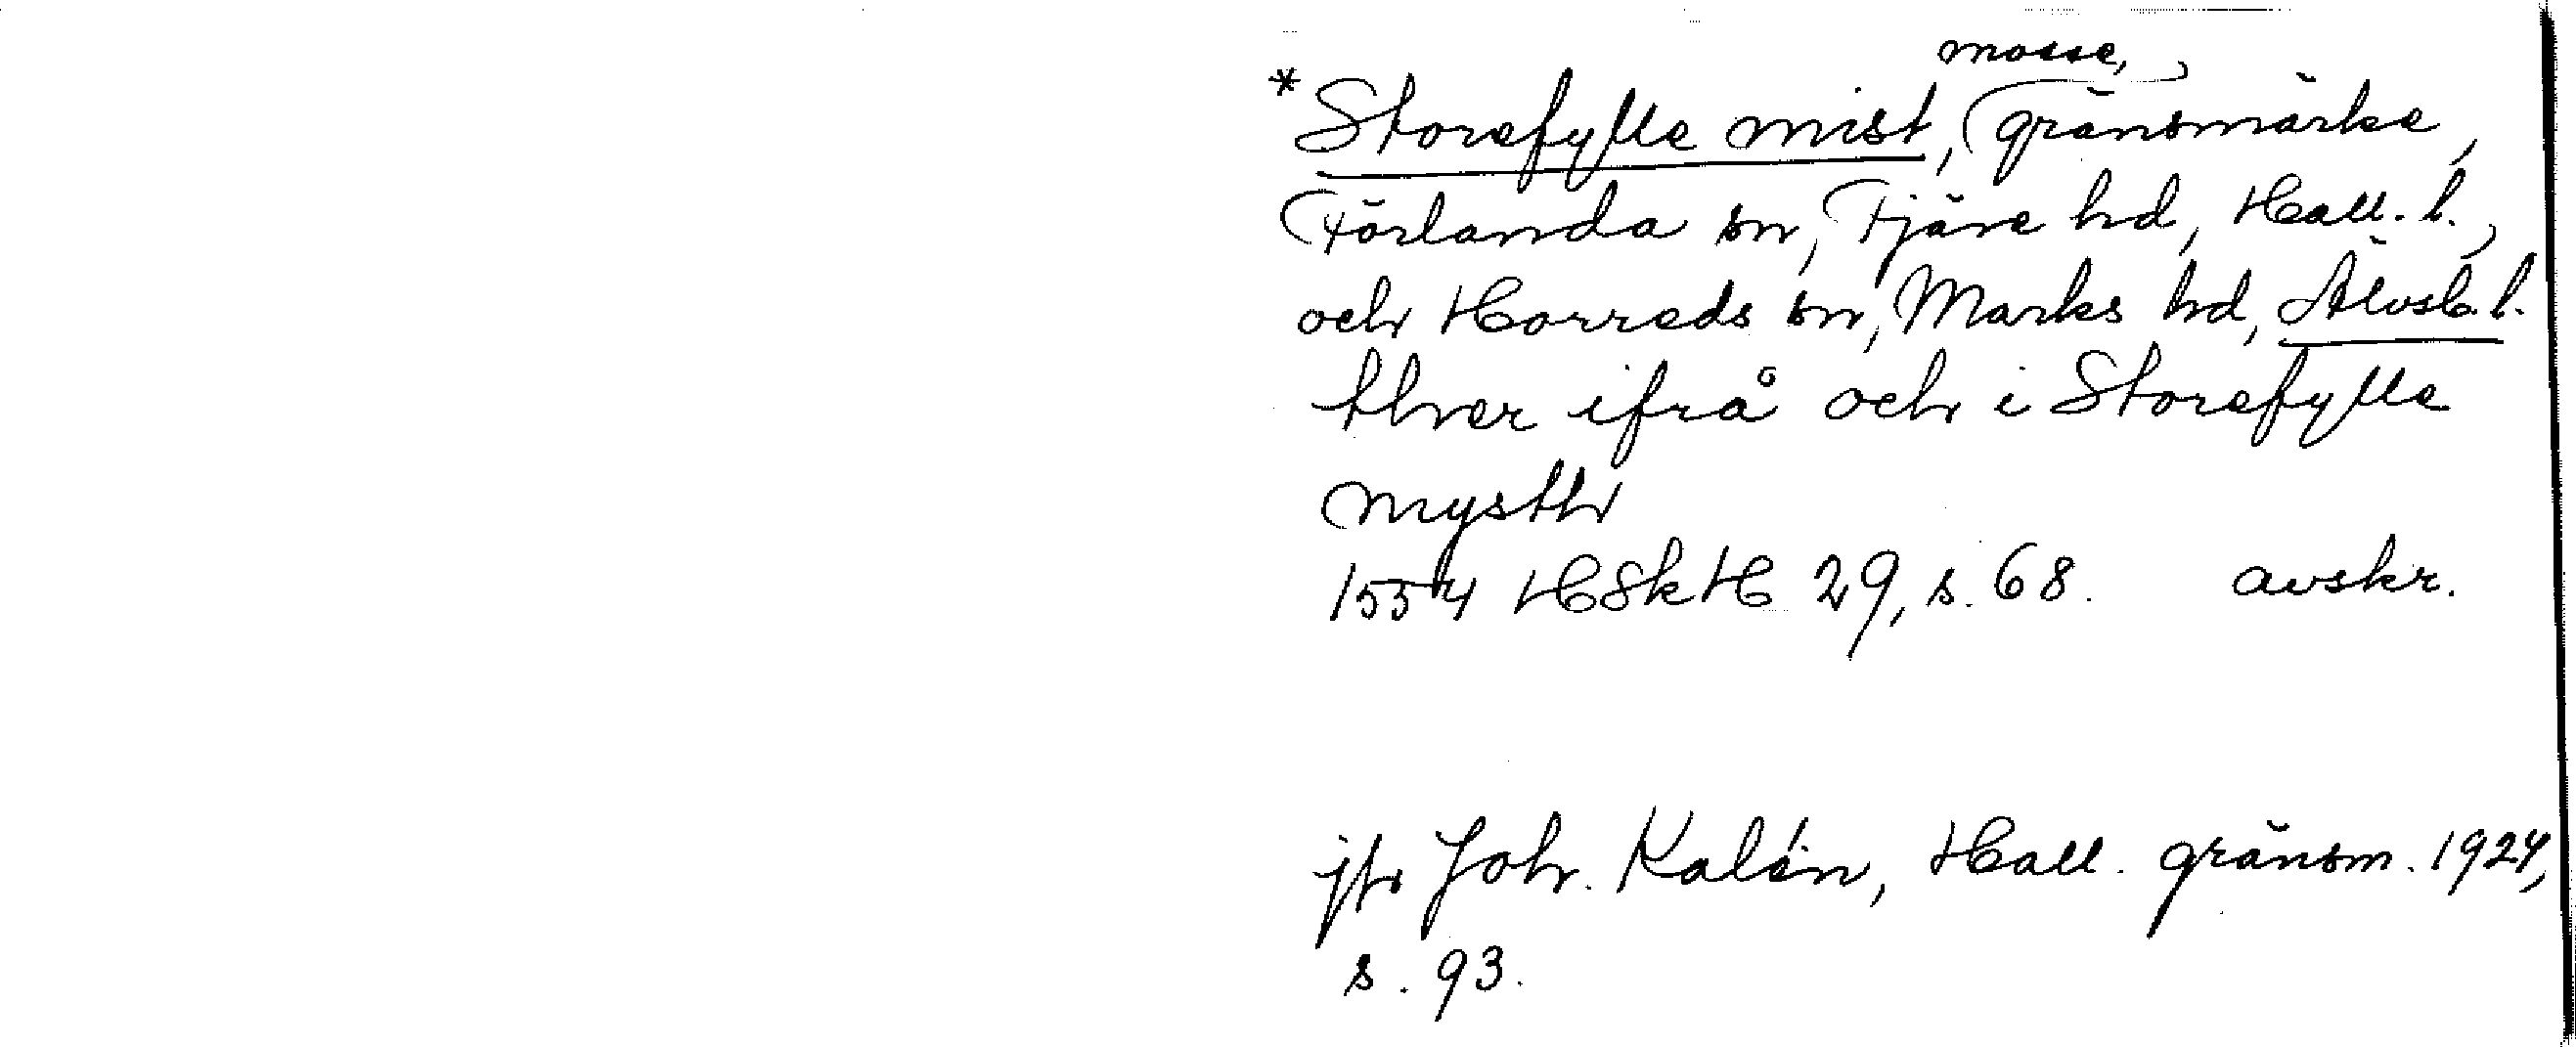 mosse,
*Storefylle mist, gränsmärke,
Förlanda sn, Fjäre hd, Hall. l.,
och Horreds sn, Marks hd, Älvsb. l.
thver ifrå och i Storefylle
mysth
1554 HSkH 29, s. 68. avskr.
jfr Joh. Kalén, Hall. gränsm. 1924,
s. 93.